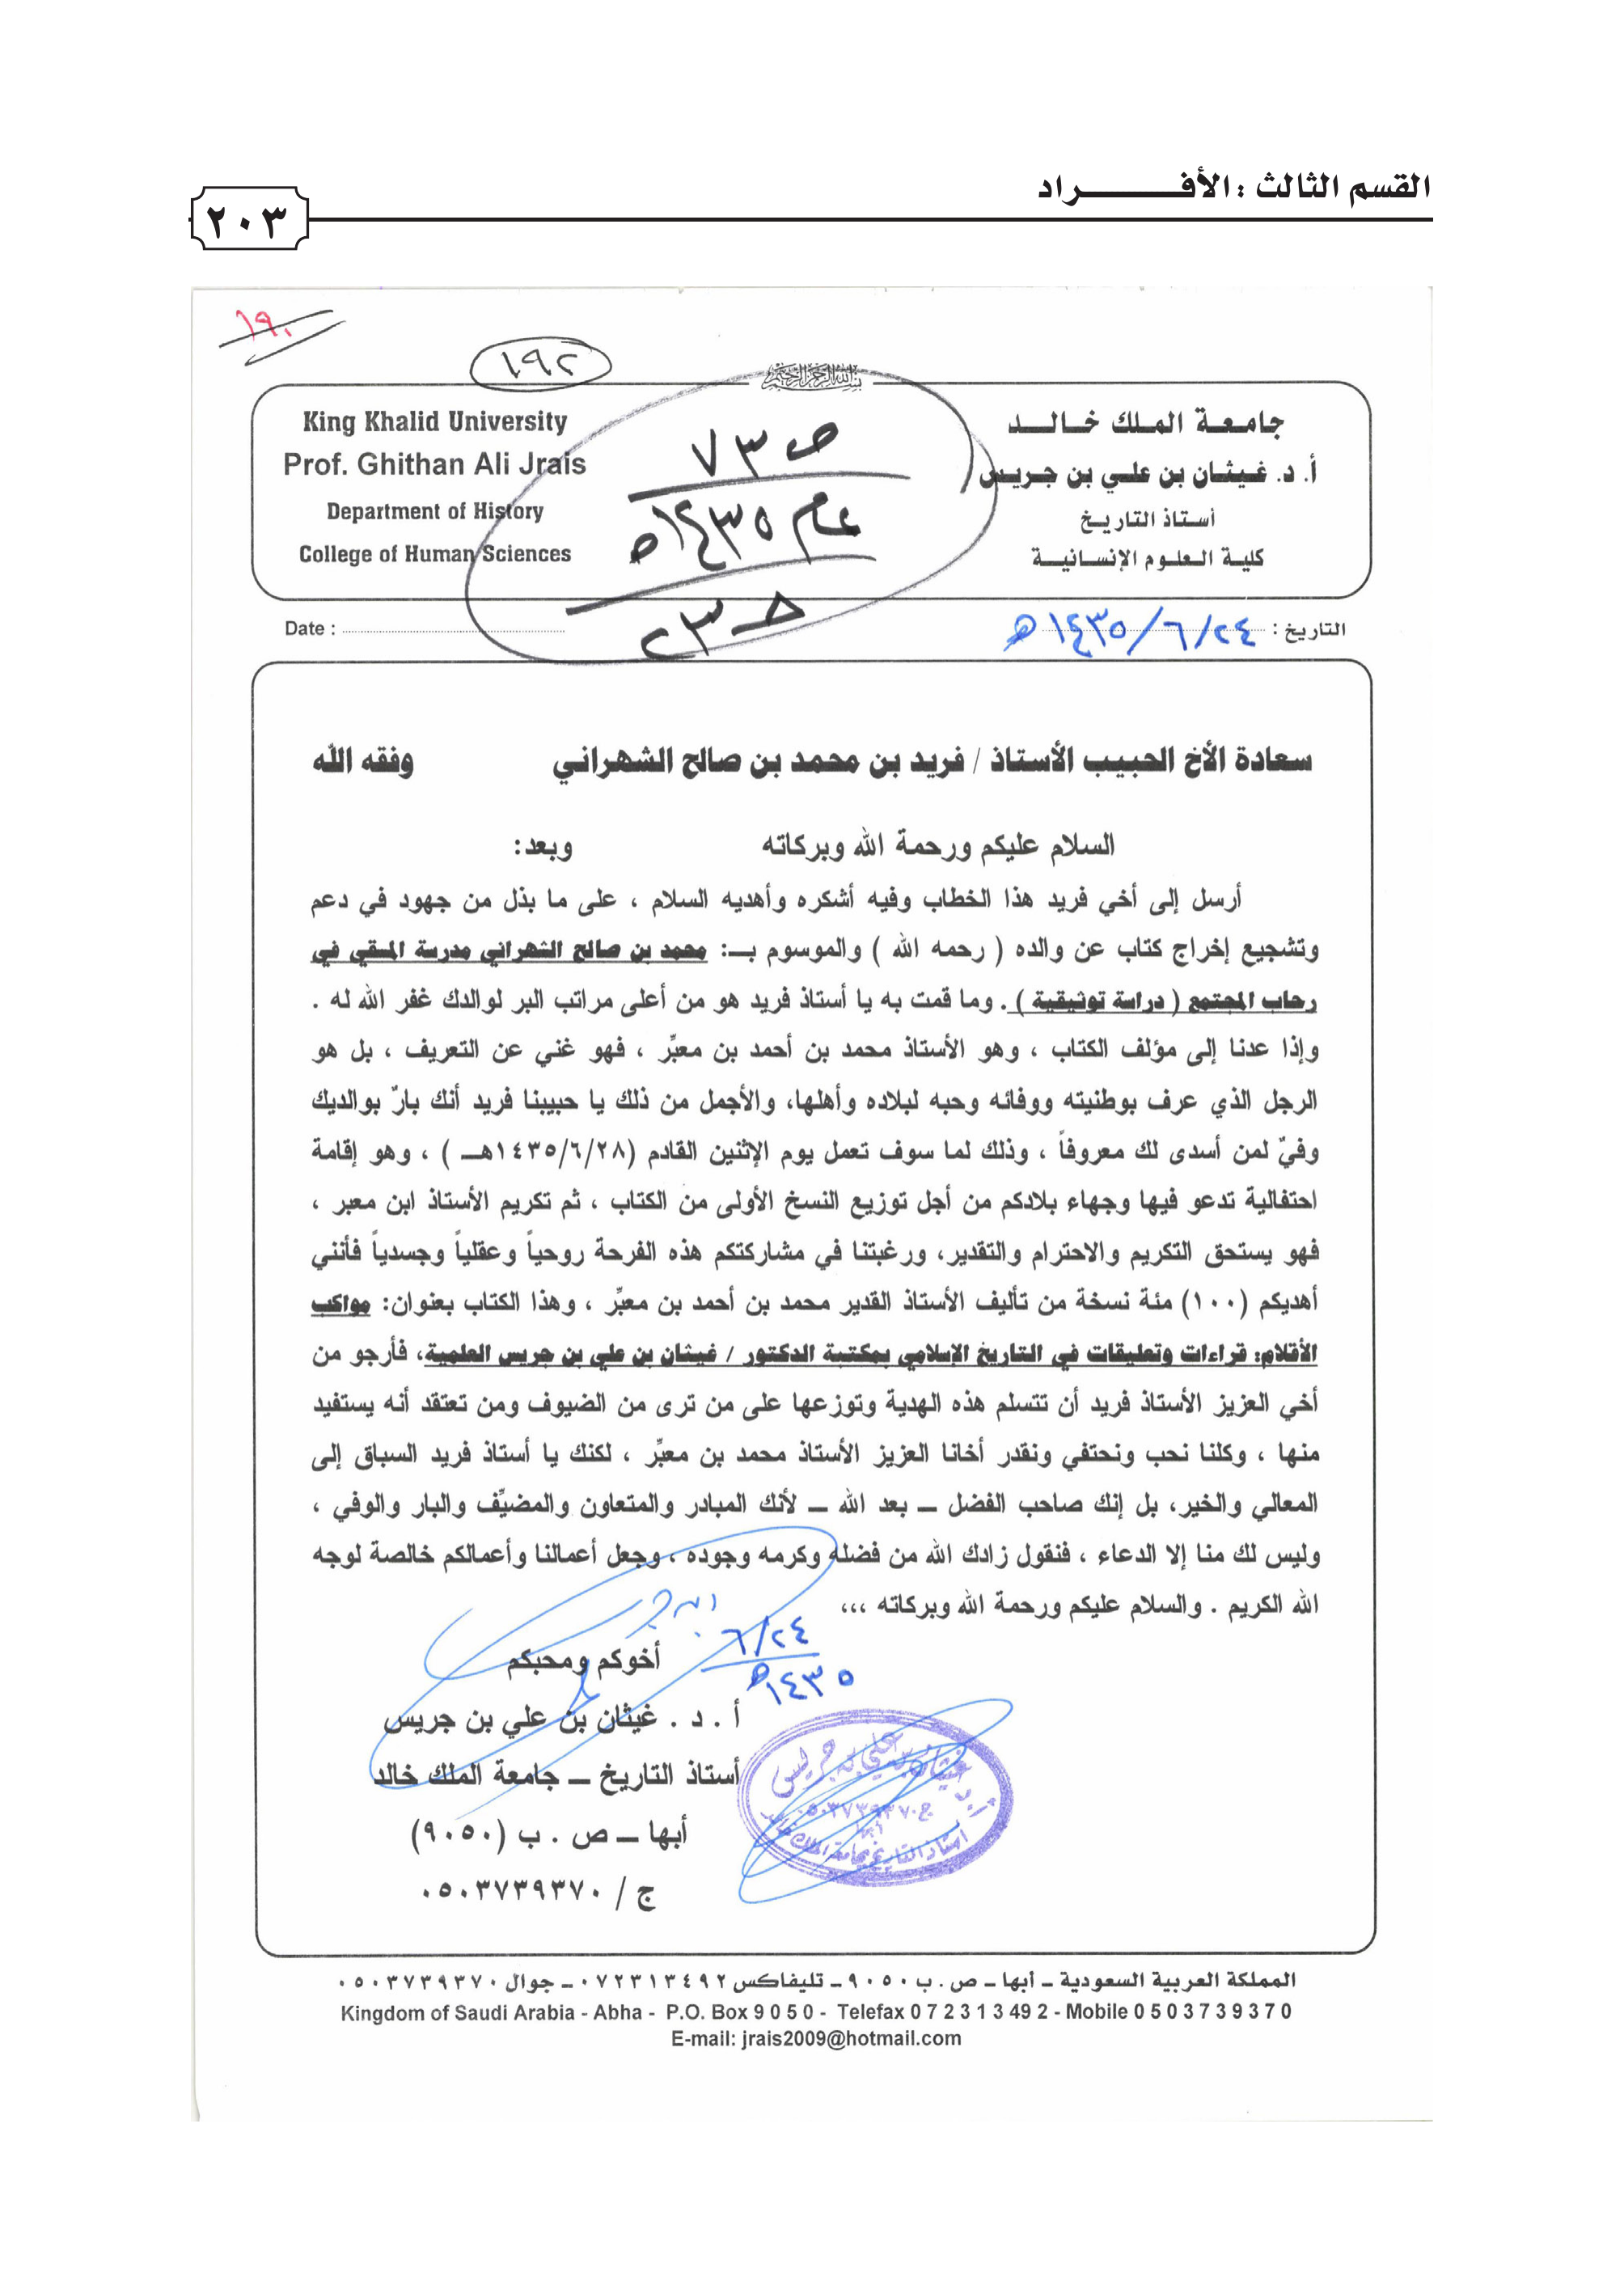 القسم الثالث : الأفـــــــــراد
٢٠٣
١٩٠
١٩٢
جامعة الملك خالد
أ. د. غيثان بن علي بن جريس
أستاذ التاريخ
كلية العلوم الإنسانية
King Khalid University
Prof. Ghithan Ali Jrais
Department of History
College of Human Sciences
ص ٧٣
عام ١٤٣٥هـ
حـ ٢٣
التاريخ : ١٤٣٥/٦/٢٤هـ
Date :
سعادة الأخ الحبيب الأستاذ / فريد بن محمد بن صالح الشهراني وفقه الله
السلام عليكم ورحمة الله وبركاته وبعد:
أرسل إلى أخي فريد هذا الخطاب وفيه أشكره وأهديه السلام ، على ما بذل من جهود في دعم
وتشجيع إخراج كتاب عن والده ( رحمه الله ) والموسوم بـ: محمد بن صالح الشهراني مدرسة المسقي في
رحاب المجتمع ( دراسة توثيقية ) . وما قمت به يا أستاذ فريد هو من أعلى مراتب البر لوالدك غفر الله له .
وإذا عدنا إلى مؤلف الكتاب ، وهو الأستاذ محمد بن أحمد بن معبِّر ، فهو غني عن التعريف ، بل هو
الرجل الذي عرف بوطنيته ووفائه وحبه لبلاده وأهلها، والأجمل من ذلك يا حبيبنا فريد أنك بارٌ بوالديك
وفيّ لمن أسدى لك معروفاً ، وذلك لما سوف تعمل يوم الإثنين القادم (١٤٣٥/٦/٢٨هـ ) ، وهو إقامة
احتفالية تدعو فيها وجهاء بلادكم من أجل توزيع النسخ الأولى من الكتاب ، ثم تكريم الأستاذ ابن معبر ،
فهو يستحق التكريم والاحترام والتقدير، ورغبتنا في مشاركتكم هذه الفرحة روحياً وعقلياً وجسدياً فأنني
أهديكم (١٠٠) مئة نسخة من تأليف الأستاذ القدير محمد بن أحمد بن معبِّر ، وهذا الكتاب بعنوان: مواكب
الأقلام: قراءات وتعليقات في التاريخ الإسلامي بمكتبة الدكتور / غيثان بن علي بن جريس العلمية، فأرجو من
أخي العزيز الأستاذ فريد أن تتسلم هذه الهدية وتوزعها على من ترى من الضيوف ومن تعتقد أنه يستفيد
منها ، وكلنا نحب ونحتفي ونقدر أخانا العزيز الأستاذ محمد بن معبِّر ، لكنك يا أستاذ فريد السباق إلى
المعالي والخير، بل إنك صاحب الفضل ــ بعد الله ــ لأنك المبادر والمتعاون والمضيِّف والبار والوفي ،
وليس لك منا إلا الدعاء ، فنقول زادك الله من فضله وكرمه وجوده ، وجعل أعمالنا وأعمالكم خالصة لوجه
الله الكريم . والسلام عليكم ورحمة الله وبركاته ،،،
٦/٢٤
١٤٣٥هـ
أخوكم ومحبكم
أ . د . غيثان بن علي بن جريس
أستاذ التاريخ ــ جامعة الملك خالد
أبها ــ ص . ب (٩٠٥٠)
ج / ٠٥٠٣٧٣٩٣٧٠
المملكة العربية السعودية ــ أبها ــ ص . ب ٩٠٥٠ ــ تليفاكس ٠٧٢٣١٣٤٩٢ ــ جوال ٠٥٠٣٧٣٩٣٧٠
Kingdom of Saudi Arabia - Abha - P.O. Box 9 0 5 0 - Telefax 0 7 2 3 1 3 49 2 - Mobile 0 5 0 3 7 3 9 3 7 0
E-mail: jrais2009@hotmail.com